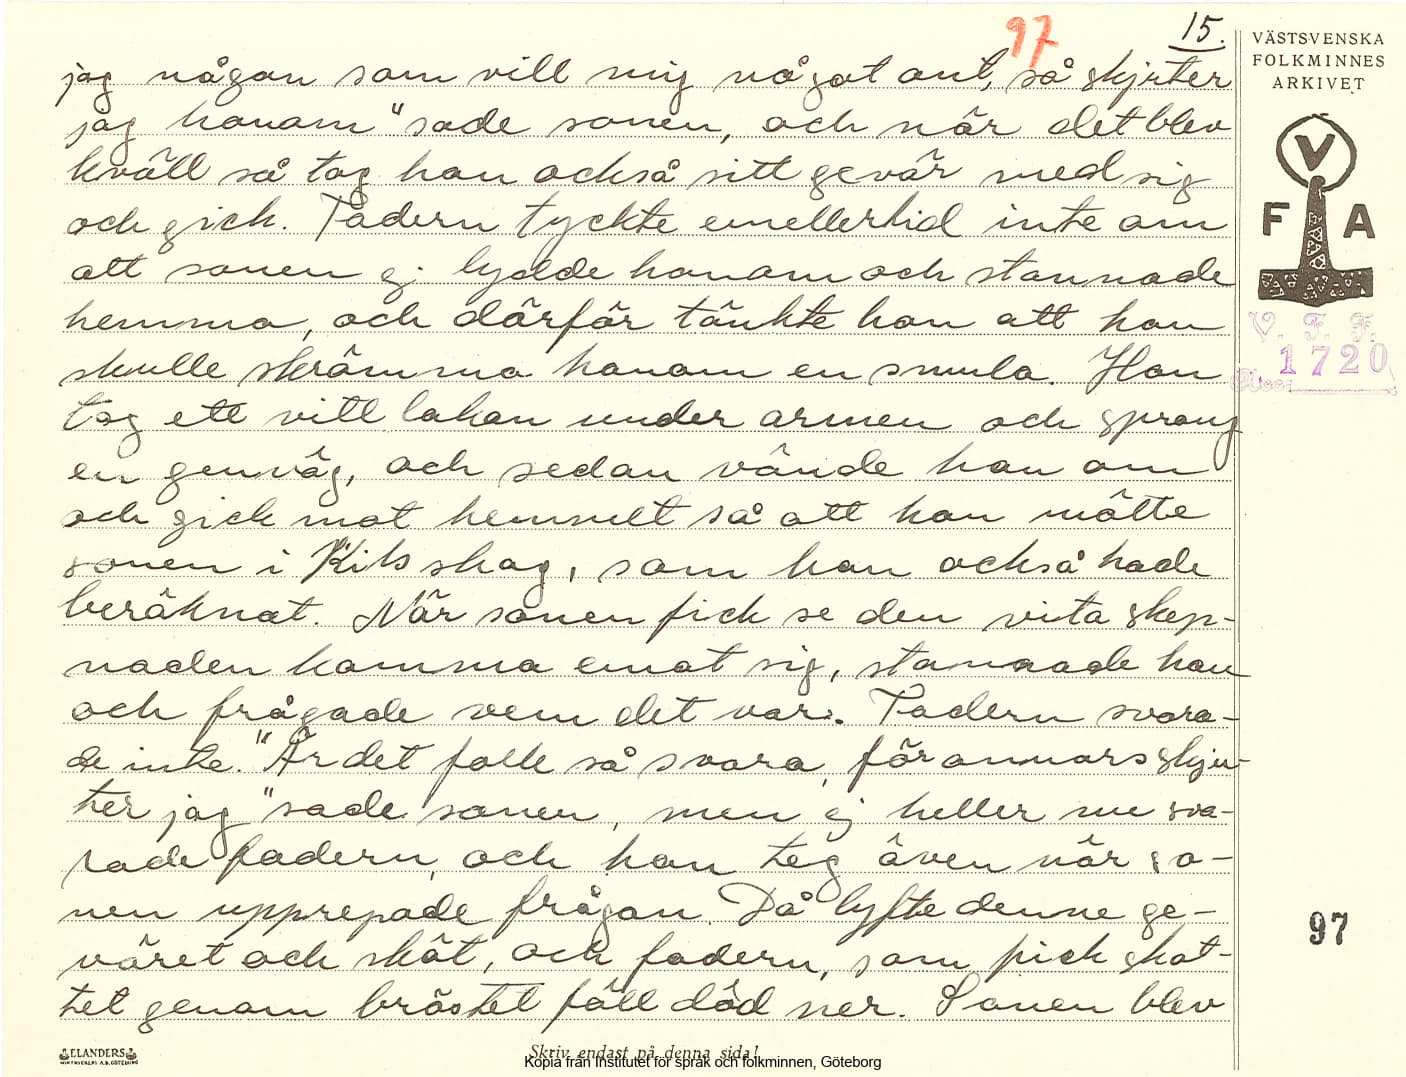 97
15.
jag någon som vill mig något ont, så skjuter
jag honom" sade sonen, och när det blev
kväll så tog han också sitt gevär med sig
och gick. Fadern tyckte emellertid inte om
att sonen ej lydde honom och stannade
hemma, och därför tänkte han att han
skulle skrämma honom en smula. Han
tog ett vitt lakan under armen och sprang
en genväg, och sedan vände han om
och gick mot hemmet så att han mötte
sonen i Kils skog, som han också hade
beräknat. När sonen fick se den vita skep-
naden komma emot sig, stannade han
och frågade vem det var. Fadern svara-
de inte. "Är det folk så svara, för annars skju-
ter jag" sade sonen, men ej heller nu sva-
rade fadern, och han teg även när so-
nen upprepade frågan. Då lyfte denne ge-
väret och sköt, och fadern, som fick skot-
tet genom bröstet föll död ner. Sonen blev
VÄSTSVENSKA
FOLKMINNES
ARKIVET
V
F A
V. F. F.
1720
97
ELANDERS
Skriv endast på denna sida!
Kopia från Institutet för språk och folkminnen, Göteborg